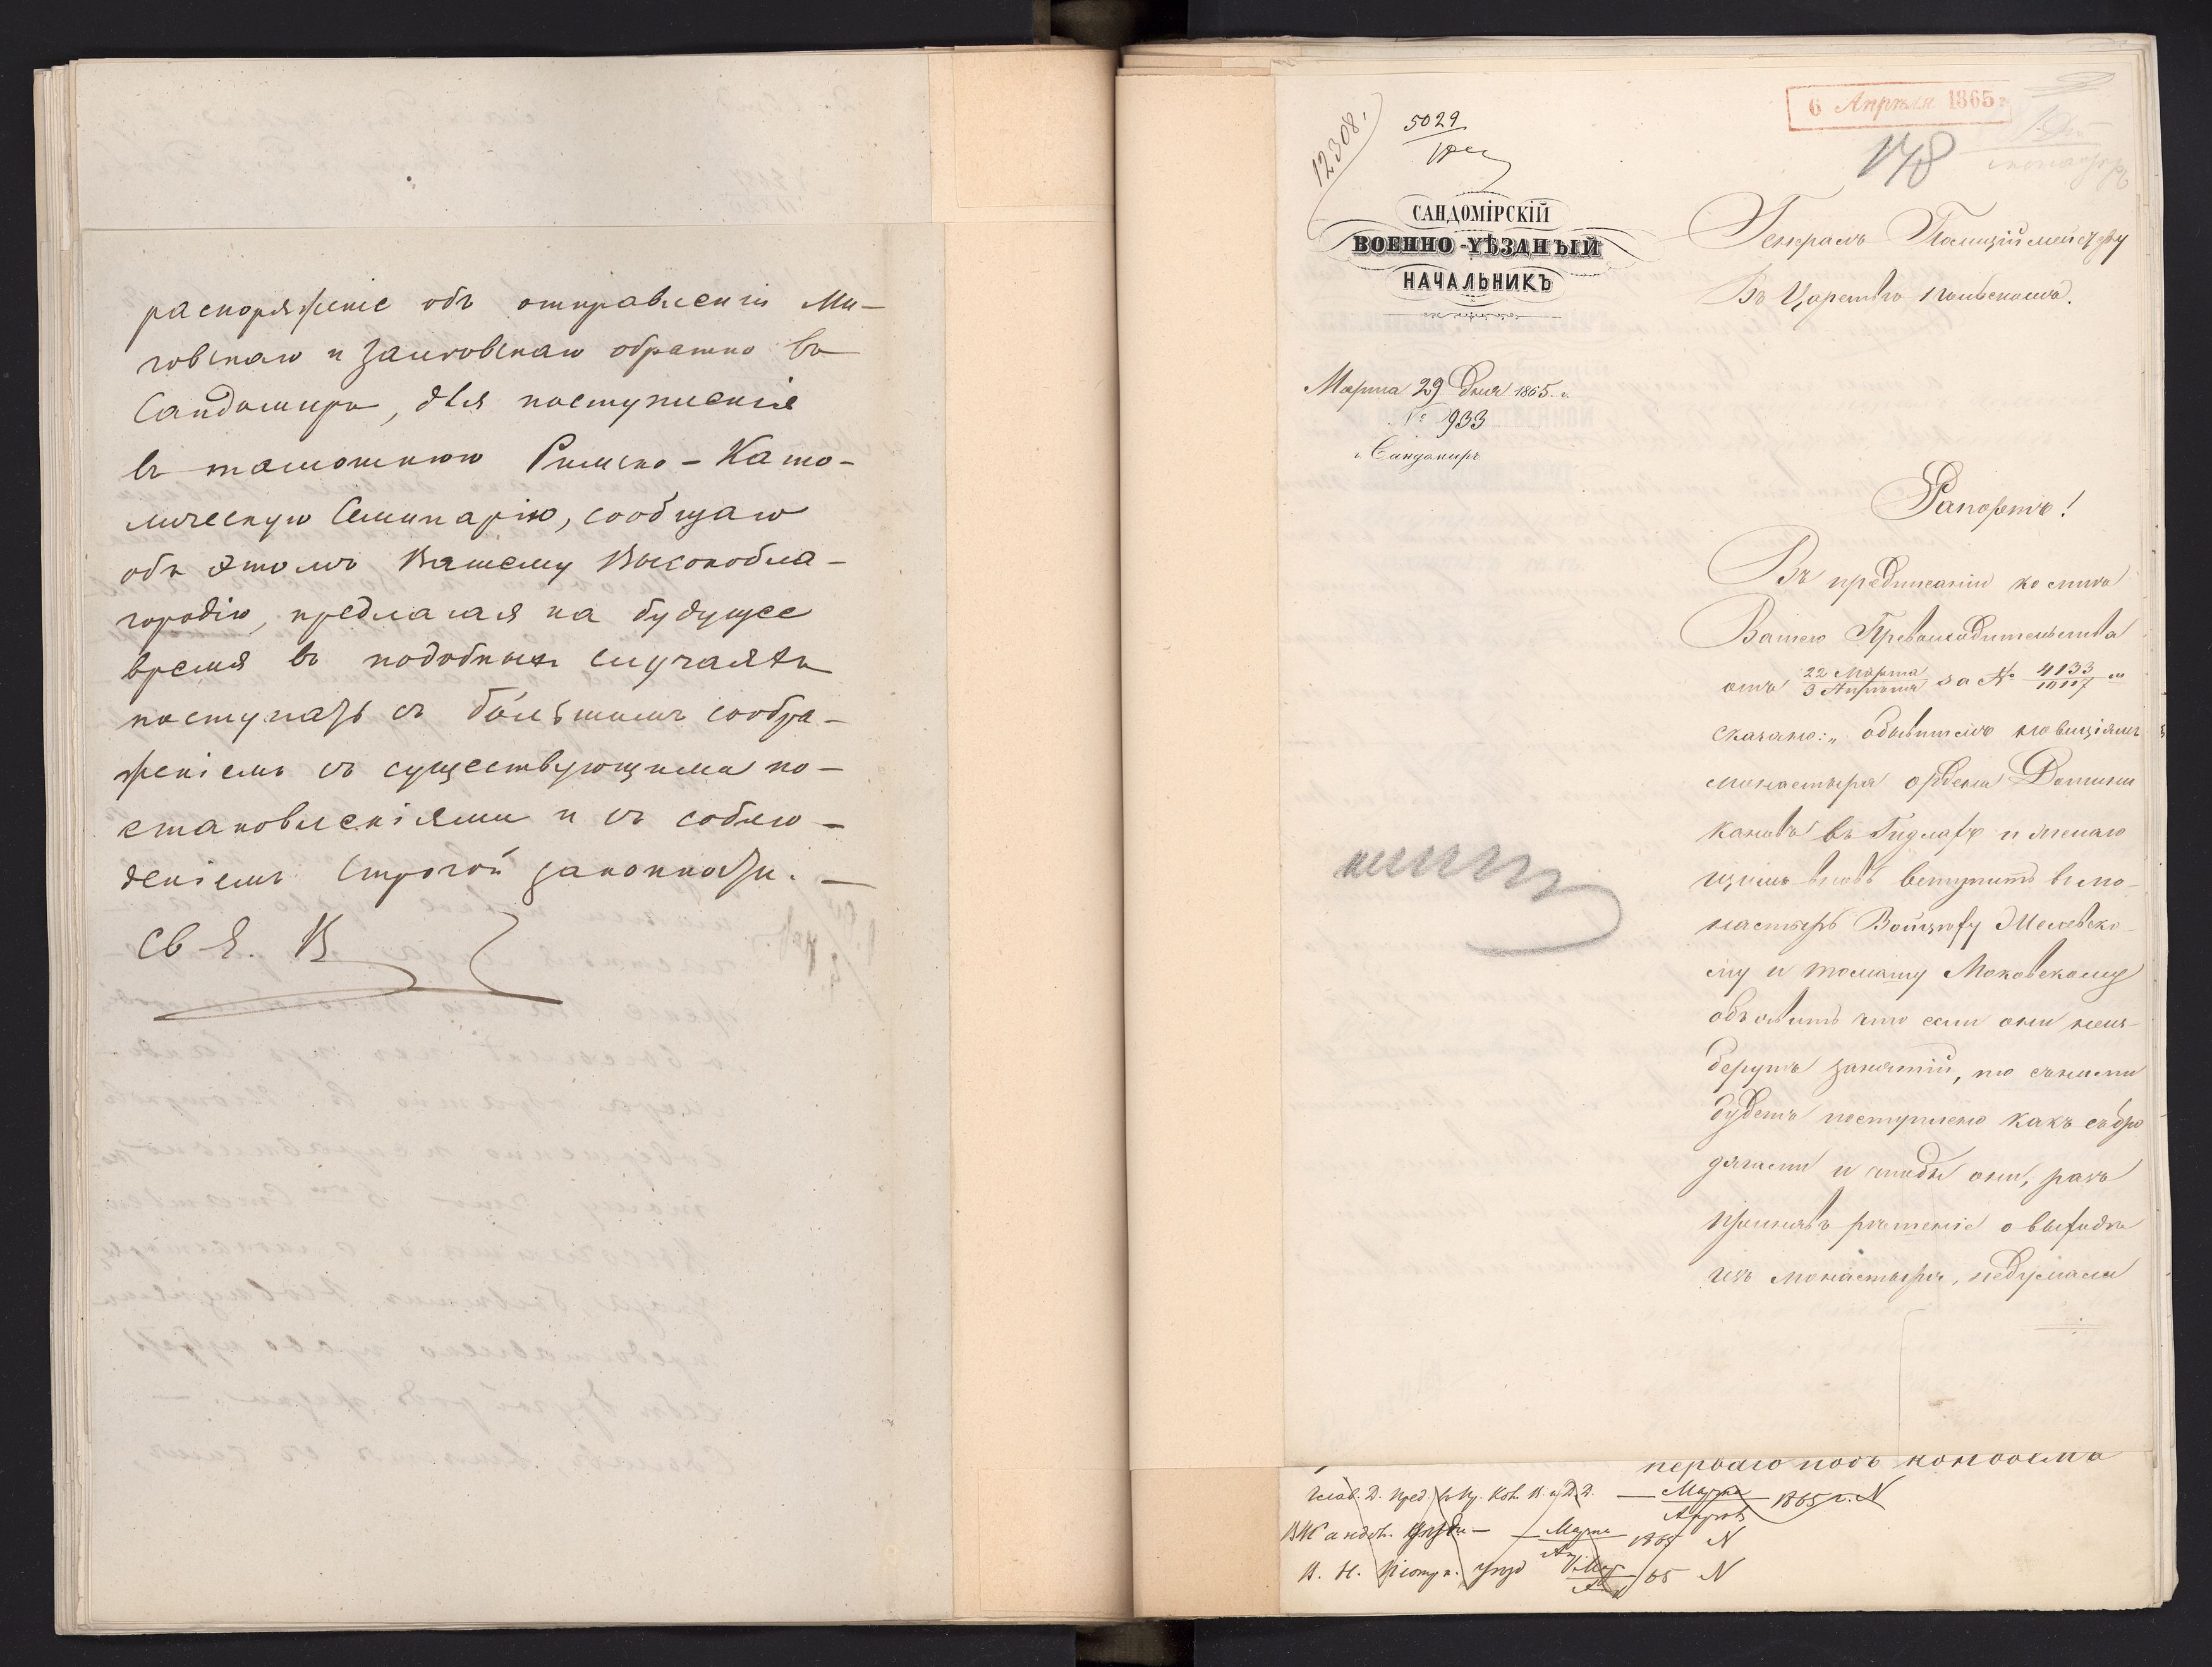 распоряженіе объ отправленіи Ми-
говскаго и Заиковскаго обратно въ
Сандомиръ, для поступленія
въ тамошнюю Римско-Като-
лическую Семинарію, сообщаю
объ этомъ Вашему Высокобла-
городію, предлагая на будущее
время въ подобныхъ случаяхъ
поступать съ большимъ сообра-
женіемъ съ существующими по-
становленіями и съ соблю-
деніемъ строгой законности. —
12308.
5029
6 Апрѣля 1865 г.
148
САНДОМІРСКІЙ
ВОЕННО-УѢЗДНЫЙ
НАЧАЛЬНИКЪ
Марта 29 дня 1865 г.
№ 933
г. Сандомиръ
Генералъ Полиціймейстеру
Въ Царствѣ Польскомъ.
Рапортъ!
Въ предписаніи ко мнѣ
Вашего Превосходительства
отъ 22 Марта / 3 Апрѣля за № 4133
сказано: „
монастыря ордена Домини
кановъ въ Гидляхъ и
вновь вступить въ мо-
настырь Войцѣху
му и Томашу Маковскому
объявить что если они неиз-
берутъ занятій, то съними
будетъ поступлено какъ съ бро
дягами и чтобы они, разъ
принявъ рѣшеніе о выходѣ
изъ монастыря, недумали
перваго подъ конвоемъ
Марта
Апрѣля 1865 г. N
Марта 1865 N
65 N